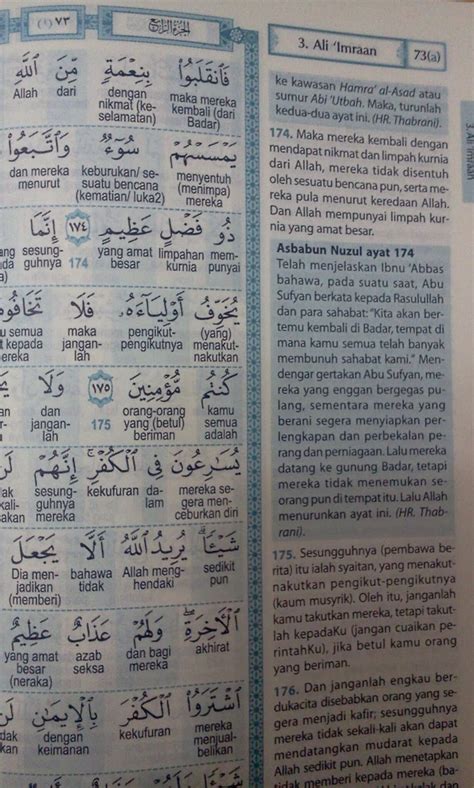 ٧٣ (١)
الجزء الرابع
فَانقَلَبُوا بِنِعْمَةٍ مِّنَ اللَّهِ
Allah dari dengan maka mereka
nikmat (ke- kembali (dari
selamatan) Badar)
يَمْسَسْهُمْ سُوٓءٌ وَاتَّبَعُوا
dan mereka keburukan/ se- menyentuh
menurut suatu bencana (menimpa)
(kematian/ luka2) mereka
ذُو فَضْلٍ عَظِيمٍ ١٧٤ إِنَّمَا
sesung- yang amat limpahan mem-
guhnya 174 besar kurnia punyai
يُخَوِّفُ أَوْلِيَآءَهُۥ فَلَا تَخَافُوهُمْ
semua maka pengikut- (yang)
kepada jangan- pengikutnya menakut-
lah nakutkan
كُنتُم مُّؤْمِنِينَ ١٧٥ وَلَا
dan orang-orang kamu
jangan- 175 yang (betul) semua
lah beriman adalah
يُسَارِعُونَ فِي الْكُفْرِ إِنَّهُمْ لَن
sesung- kekufuran da- mereka se-
guhnya lam gera men-
mereka ceburkan diri
شَيْئًا يُرِيدُ اللَّهُ أَلَّا يَجْعَلَ
Dia men- bahawa Allah meng- sedikit
jadikan tidak hendaki pun
(memberi)
الْآخِرَةِ وَلَهُمْ عَذَابٌ عَظِيمٌ
yang amat azab dan bagi akhirat
besar seksa mereka
(neraka)
اشْتَرَوُا الْكُفْرَ بِالْإِيمَٰنِ لَن
dengan kekufuran mereka
keimanan menjual-
belikan
3. Ali 'Imraan 73(a)
ke kawasan Hamra' al-Asad atau
sumur Abi 'Utbah. Maka, turunlah
kedua-dua ayat ini. (HR. Thabrani).
174. Maka mereka kembali dengan
mendapat nikmat dan limpah kurnia
dari Allah, mereka tidak disentuh
oleh sesuatu bencana pun, serta me-
reka pula menurut keredaan Allah.
Dan Allah mempunyai limpah kur-
nia yang amat besar.
Asbabun Nuzul ayat 174
Telah menjelaskan Ibnu 'Abbas
bahawa, pada suatu saat, Abu
Sufyan berkata kepada Rasulullah
dan para sahabat: "Kita akan ber-
temu kembali di Badar, tempat di
mana kamu semua telah banyak
membunuh sahabat kami." Men-
dengar gertakan Abu Sufyan, me-
reka yang enggan bergegas pu-
lang, sementara mereka yang
berani segera menyiapkan per-
lengkapan dan perbekalan pe-
rang dan perniagaan. Lalu mereka
datang ke gunung Badar, tetapi
mereka tidak menemukan se-
orang pun di tempat itu. Lalu Allah
menurunkan ayat ini. (HR. Thab-
rani).
175. Sesungguhnya (pembawa be-
rita) itu ialah syaitan, yang menakut-
nakutkan pengikut-pengikutnya
(kaum musyrik). Oleh itu, janganlah
kamu takutkan mereka, tetapi takut-
lah kepadaKu (jangan cuaikan pe-
rintahKu), jika betul kamu orang
yang beriman.
176. Dan janganlah engkau ber-
dukacita disebabkan orang yang se-
gera menjadi kafir; sesungguhnya
mereka tidak sekali-kali akan dapat
mendatangkan mudarat kepada
Allah sedikit pun. Allah menetapkan
tidak memberi kepada mereka (ba-